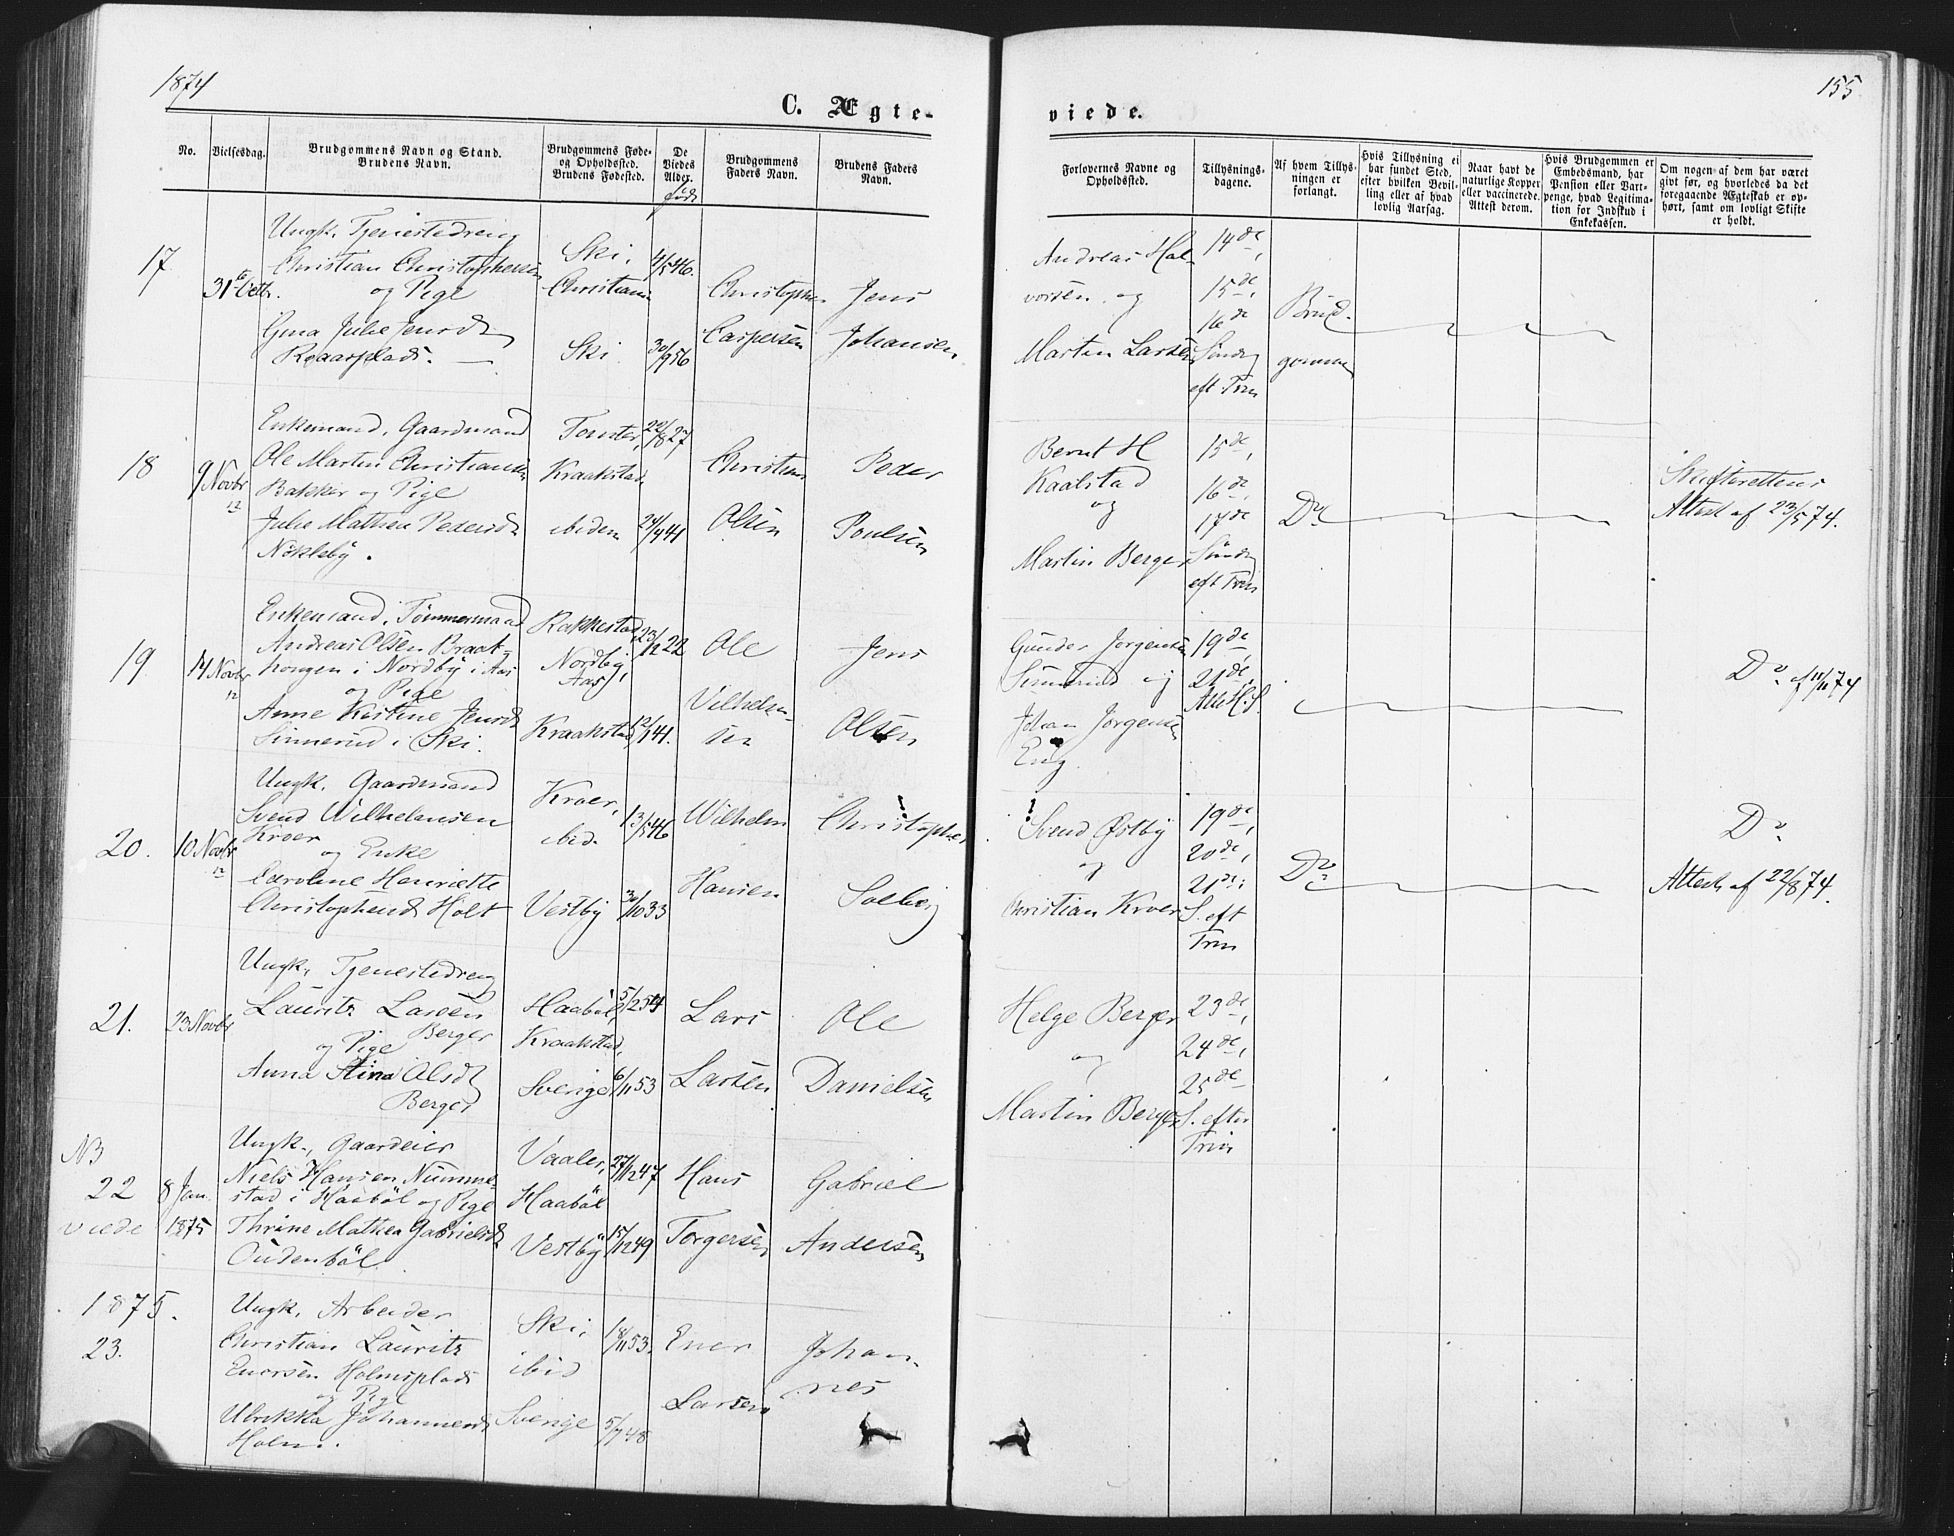 1874
155
C. Ægte-
viede.
No.
Vielsesdag.
Brudgommens Navn og Stand.
Brudens Navn.
Brudgommens Føde-
og Opholdssted.
Brudens Fødested.
De
Viedes
Alder.
Brudgommens
Faders Navn.
Brudens Faders
Navn.
Forlovernes Navne og
Opholdssted.
Tillysnings-
dagene.
Af hvem Tillys-
ningen er
forlangt.
Hvis Tillysning ei
har fundet Sted,
efter hvilken Bevil-
ling eller af hvad
lovlig Aarsag.
Naar havt de
naturlige Kopper
eller vaccinerede.
Attest derom.
Hvis Brudgommen er
Embedsmand, har
Pension eller Vart-
penge, hvad Legitima-
tion for Indskud i
Enkekassen.
Om nogen af dem har været
givt før, og hvorledes da det
foregaaende Ægteskab er op-
hørt, samt om lovligt Skifte
er holdt.
17
31te Octbr.
Ungk. Tjenestedreng
Christian Christophersen
og Pige
Gina Julie Jensd.
Roaasplads.
Ski,
Christiania
Ski
4/5 46.
30/9 56
Christopher
Caspersen
Jens
Johansen
Andreas Hal-
vorsen og
Martin Larsen
14de,
15de,
16de
Søndg
eft Trin
Brud-
gommen
18
9 Novbr
Enkemand, Gaardmand
Ole Martin Christiansen
Bakker og Pige
Julie Mathea Pedersd.
Nøkleby.
Tomter,
Kraakstad
ibidem
22/8 27
24/9 41
Christian
Olsen
Peder
Poulsen
Bernt H
Kaalstad
og
Martin Berger
15de,
16de
17de
Søndg
eft Trin
Do
Skifterettens
Attest af 23/5 74.
19
14 Novbr
Enkemand, Tømmermand
Andreas Olsen Braat-
hongen i Nordby i Aas
og Pige
Anne Kirstine Jensd
Sinnerud i Ski.
Rakkestad,
Nordby,
Aas,
Kraakstad
23/12 22
Ole
Vilhelm-
sen
Jens
Olsen
Gunder Jørgensen
Sinnerud og
Johan Jørgensen
Eng.
19de,
21de,
Do af 11/11 74
20.
10 Novbr
Ungk. Gaardmand
Svend Wilhelmsen
Kroer
og Enke
Caroline Henriette
Christophersd Holt
Kroer,
ibid.
Vestby
13/5 46
30/10 33
Wilhelm
Hansen
Christopher
Solberg
Svend Østby
og
Christian Kroer
19de,
20de,
21de,
S. eft
Trin
Do
Do
Attest af 22/8 74.
21.
23 Novbr
Ungk. Tjenestedreng
Lauritz Larsen
Berger
og Pige
Anna Stina Olsd
Berger
Haabøl,
Kraakstad,
Sverige
5/2 54
6/11 53
Lars
Larsen
Ole
Danielsen
Helge Berger
og
Martin Berger
23de,
24de,
25de
S. efter
Trin
NB
22
viede
8 Jan.
1875
Ungk., Gaardeier
Niels Hansen Numme-
stad i Haabøl og Pige
Thrine Mathea Gabrielsd.
Oudenbøl
Vaaler,
Haabøl
Vestby
27/12 47
15/12 49
Hans
Torgersen
Gabriel
Andersen
1875.
23.
Ungk. Arbeider
Christian Lauritz
Enersen Holmsplads
og Pige
Ulrikka Johannesd
Holm.
Ski,
ibid
Sverige
18/11 53.
5/7 48
Ener
Larsen
Johan-
nes